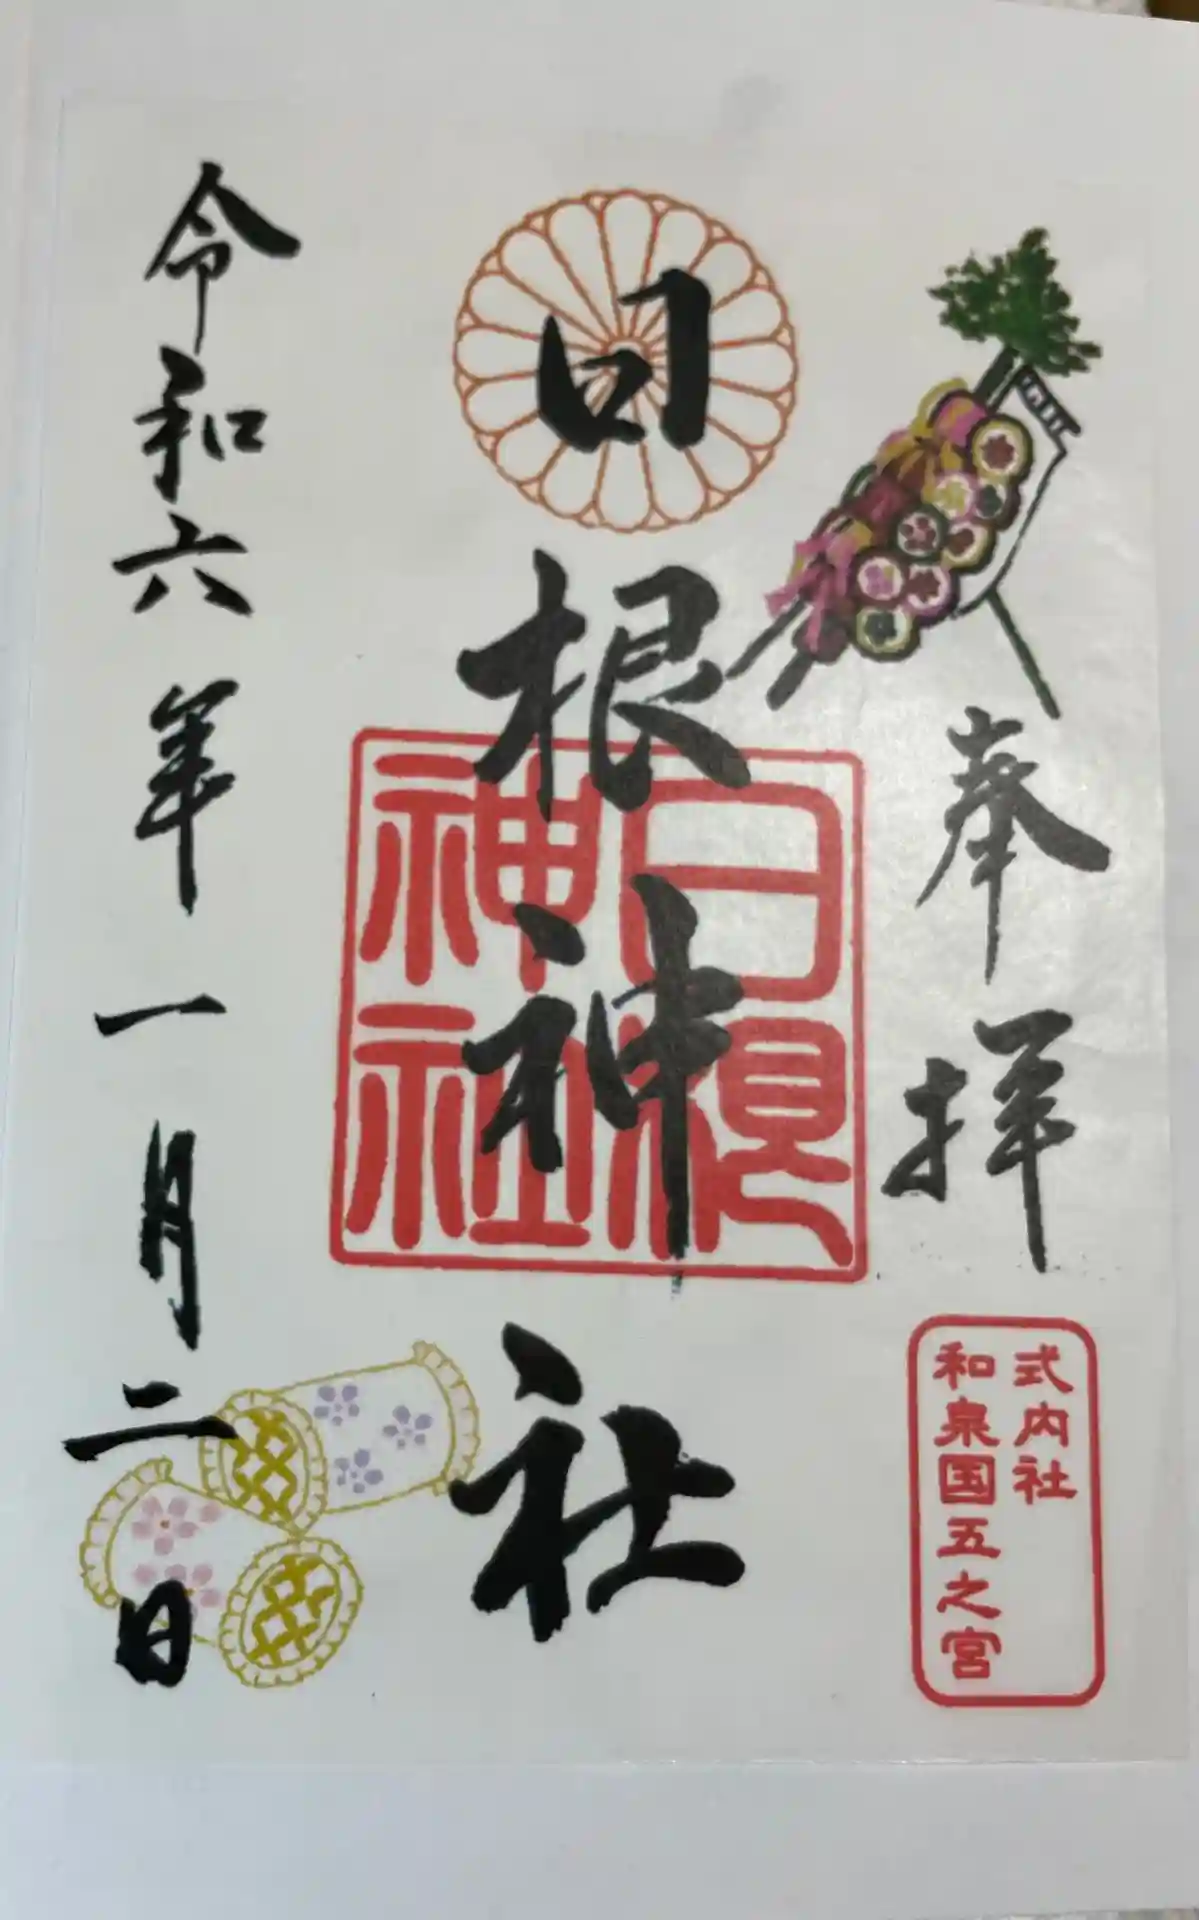 奉拝
式内社
和泉国五之宮
日根神社
日根
神社
令和六年一月二日